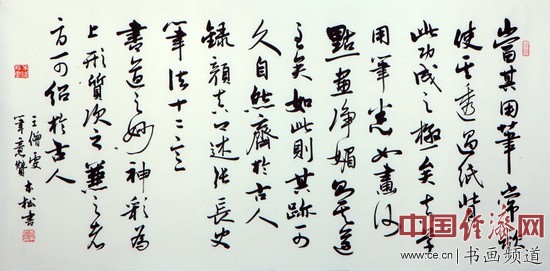 當其用筆常欲
使其透過紙背
此功成之極矣真草
用筆悉如畫沙
點畫淨媚則其道
至矣如此則其跡可
久自然齊於古人
錄顏真卿述張長史
筆法十二意
書道之妙神彩為
上形質次之兼之者
方可紹於古人
王僧虔
筆意贊 木松書
中国经济网
www.ce.cn | 书画频道